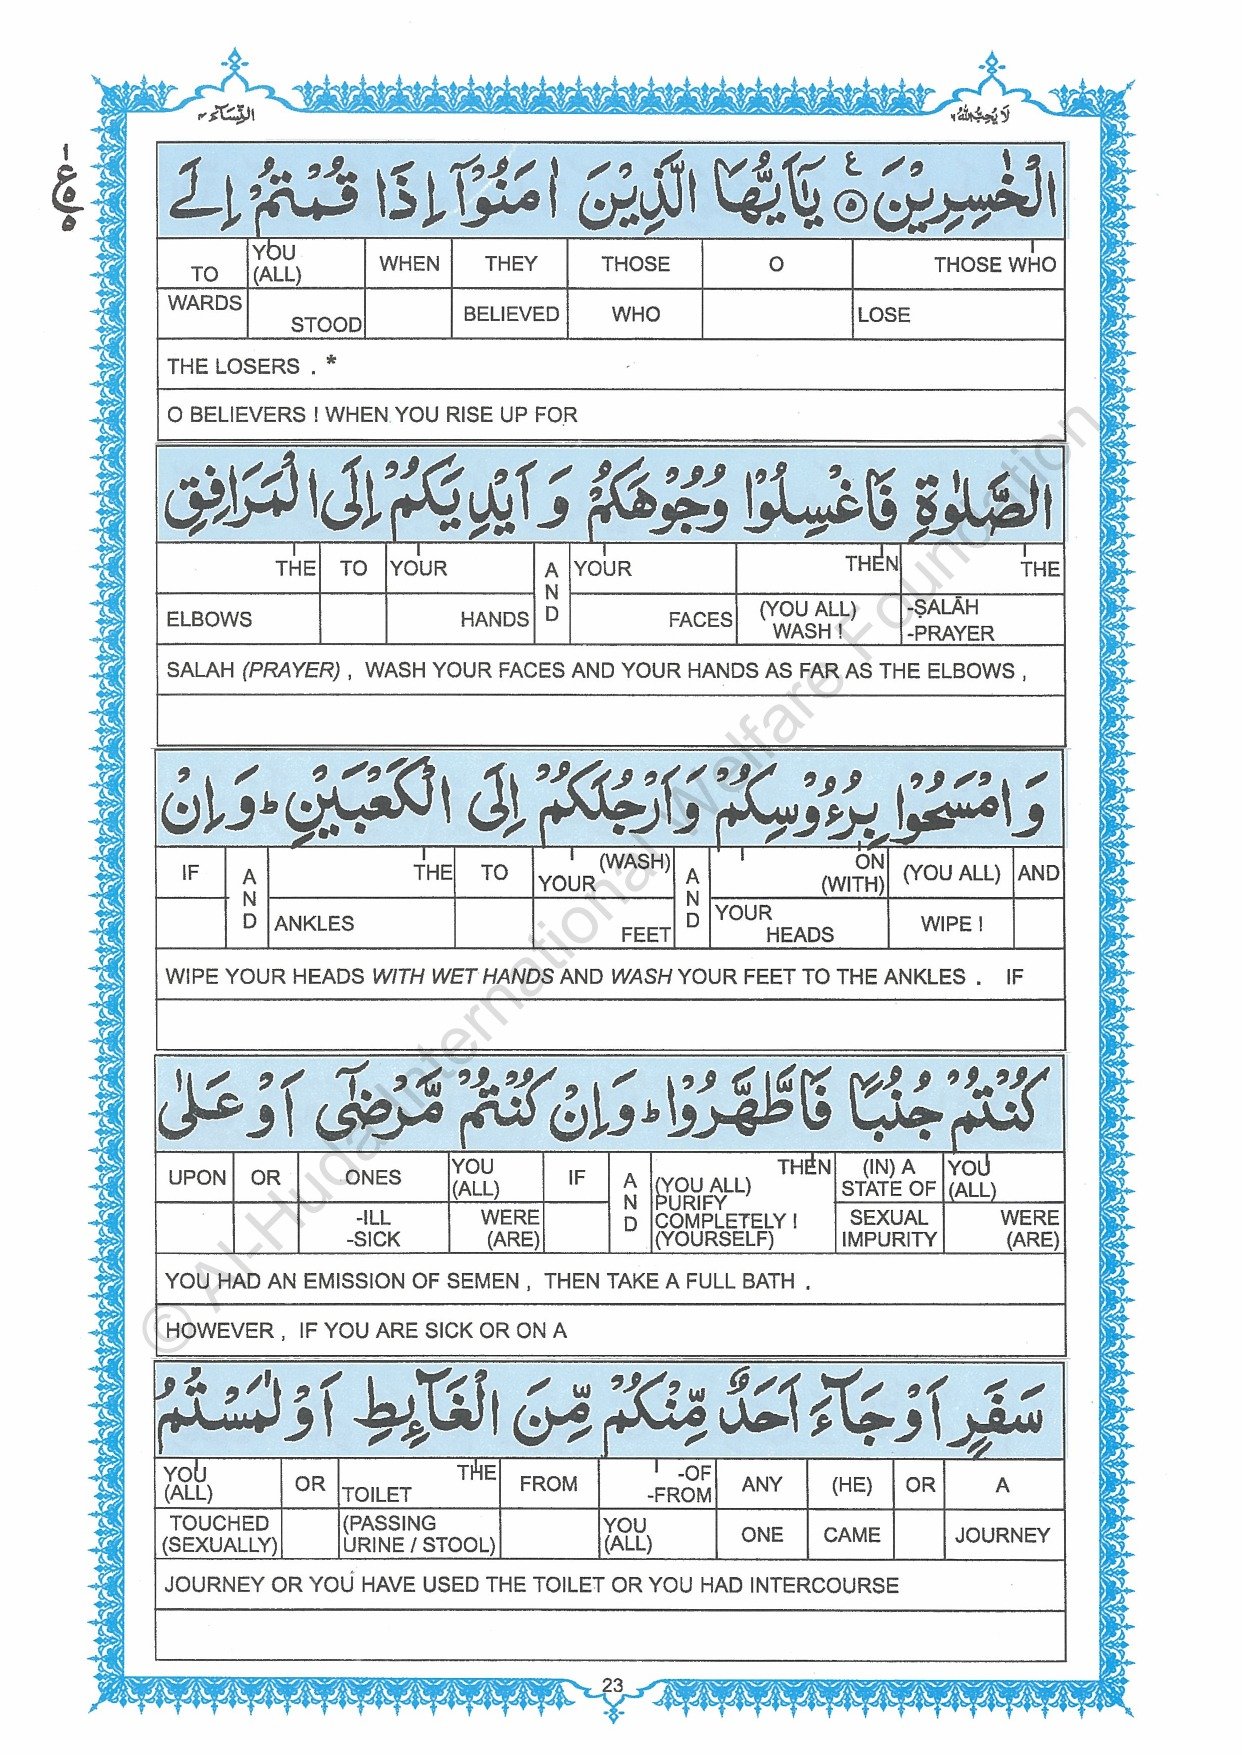 النِّسَآء ٤
لَا يُحِبُّ اللهُ ٦
الْخٰسِرِيْنَ ۵ يٰۤاَيُّهَا الَّذِيْنَ اٰمَنُوْۤا اِذَا قُمْتُمْ اِلَى
TO YOU (ALL) WHEN THEY THOSE O THOSE WHO
WARDS STOOD BELIEVED WHO LOSE
THE LOSERS . *
O BELIEVERS ! WHEN YOU RISE UP FOR
الصَّلٰوةِ فَاغْسِلُوْا وُجُوْهَكُمْ وَ اَيْدِيَكُمْ اِلَى الْمَرَافِقِ
THE TO YOUR AND YOUR THEN THE
ELBOWS HANDS FACES (YOU ALL) WASH ! -ṢALĀH -PRAYER
SALAH (PRAYER) , WASH YOUR FACES AND YOUR HANDS AS FAR AS THE ELBOWS ,
وَ امْسَحُوْا بِرُءُوْسِكُمْ وَ اَرْجُلَكُمْ اِلَى الْكَعْبَيْنِ ؕ وَ اِنْ
IF AND THE TO (WASH) YOUR AND ON (WITH) (YOU ALL) AND
ANKLES FEET YOUR HEADS WIPE !
WIPE YOUR HEADS WITH WET HANDS AND WASH YOUR FEET TO THE ANKLES . IF
كُنْتُمْ جُنُبًا فَاطَّهَّرُوْا ؕ وَ اِنْ كُنْتُمْ مَّرْضٰۤى اَوْ عَلٰى
UPON OR ONES YOU (ALL) IF AND THEN (YOU ALL) PURIFY COMPLETELY ! (YOURSELF) (IN) A STATE OF YOU (ALL)
-ILL -SICK WERE (ARE) SEXUAL IMPURITY WERE (ARE)
YOU HAD AN EMISSION OF SEMEN , THEN TAKE A FULL BATH .
HOWEVER , IF YOU ARE SICK OR ON A
سَفَرٍ اَوْ جَآءَ اَحَدٌ مِّنْكُمْ مِّنَ الْغَآىِٕطِ اَوْ لٰمَسْتُمُ
YOU (ALL) OR THE TOILET FROM -OF -FROM ANY (HE) OR A
TOUCHED (SEXUALLY) (PASSING URINE / STOOL) YOU (ALL) ONE CAME JOURNEY
JOURNEY OR YOU HAVE USED THE TOILET OR YOU HAD INTERCOURSE
23
© Al-Huda International Welfare Foundation